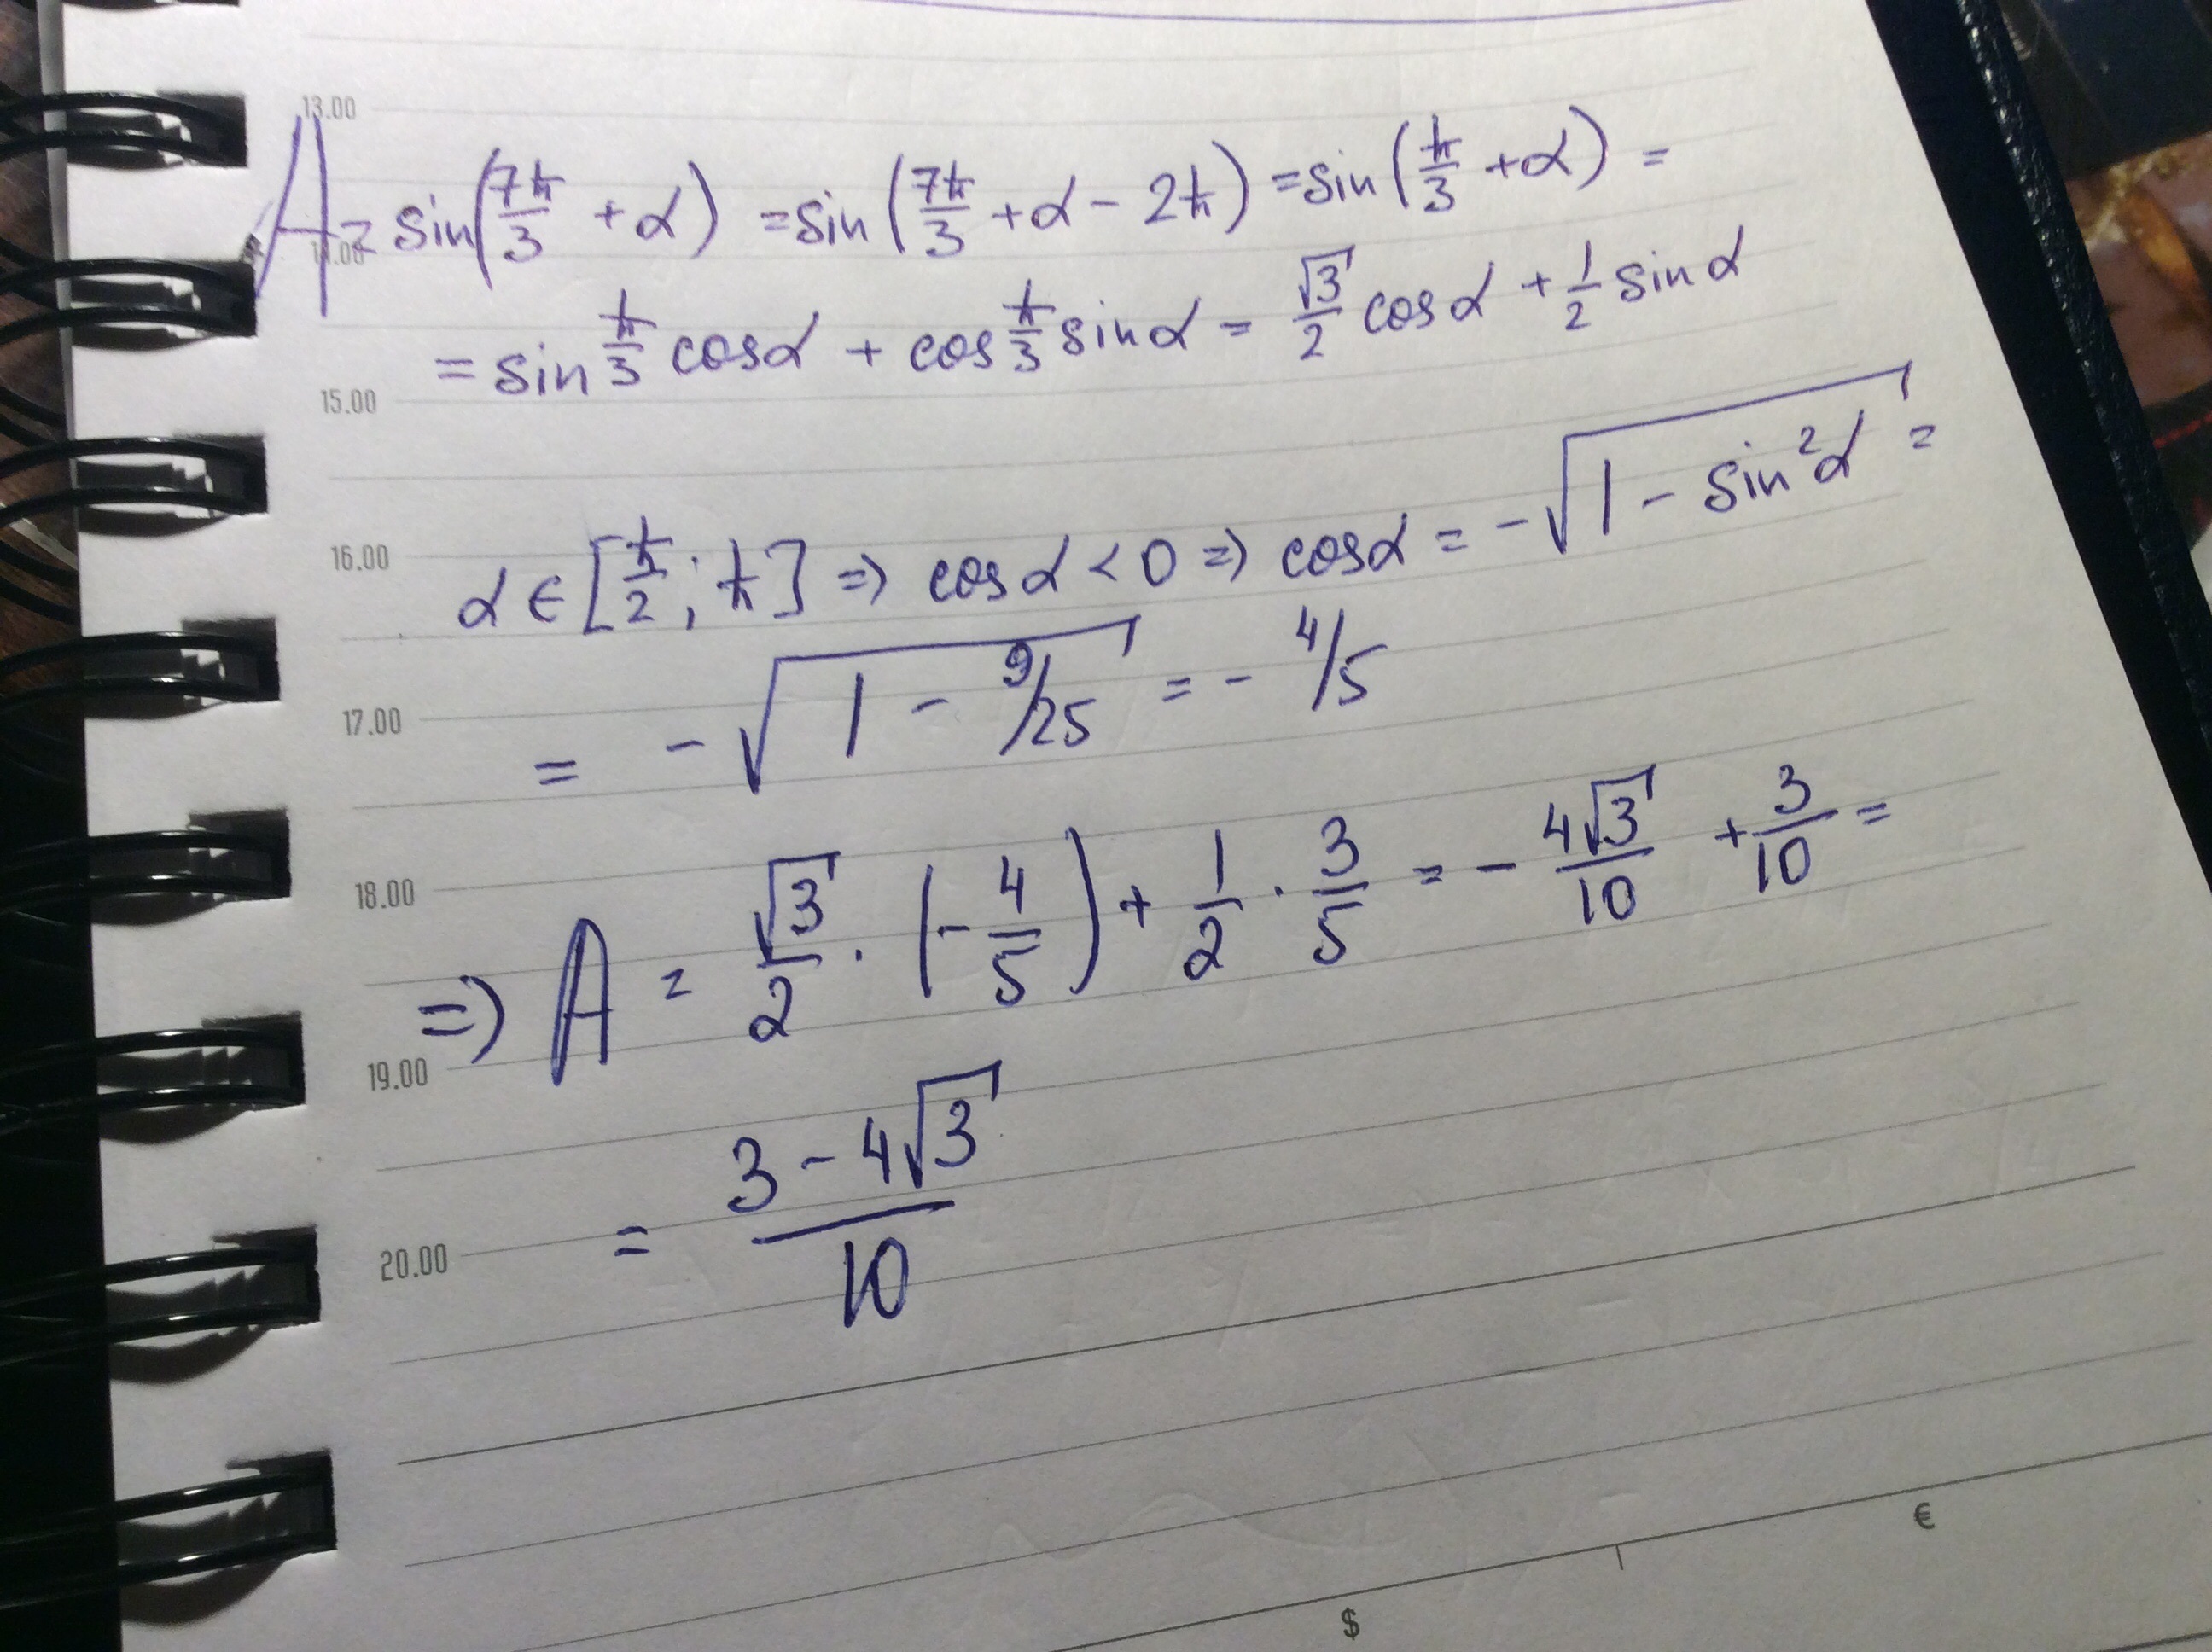 13.00
A = sin(7π/3 + α) = sin(7π/3 + α - 2π) = sin(π/3 + α) =
14.00
= sin π/3 cosα + cos π/3 sinα = √3/2 cosα + 1/2 sinα
15.00
16.00
α ∈ [π/2; π] => cosα < 0 => cosα = -√(1 - sin²α) =
17.00
= -√(1 - 9/25) = - 4/5
18.00
=> A = √3/2 · (-4/5) + 1/2 · 3/5 = - 4√3/10 + 3/10 =
19.00
= (3 - 4√3)/10
20.00
€
$